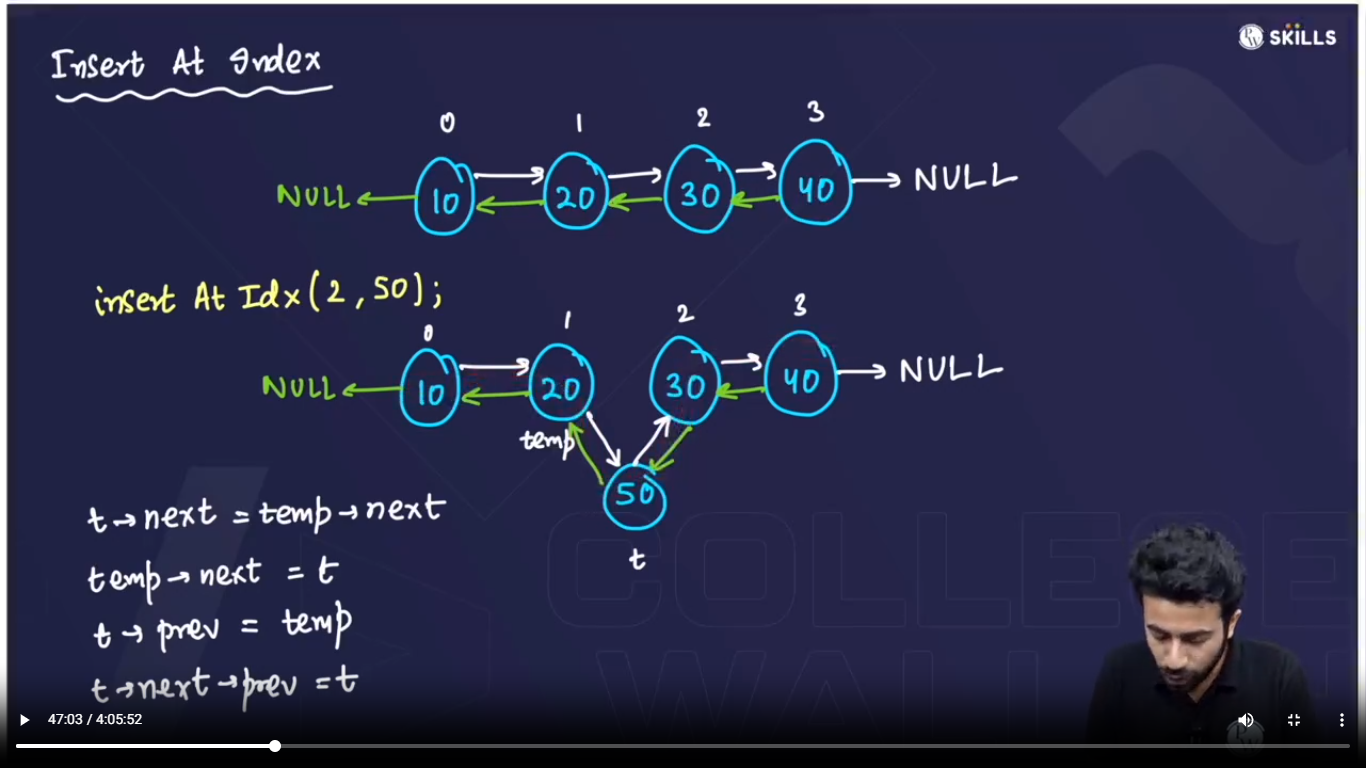 Insert At Index
PW SKILLS
0 1 2 3
NULL 10 20 30 40 NULL
insert At Idx(2, 50);
0 1 2 3
NULL 10 20 30 40 NULL
temp
50
t
t→next = temp→next
temp→next = t
t→prev = temp
t→next→prev = t
COLLEGE
WALLAH
47:03 / 4:05:52